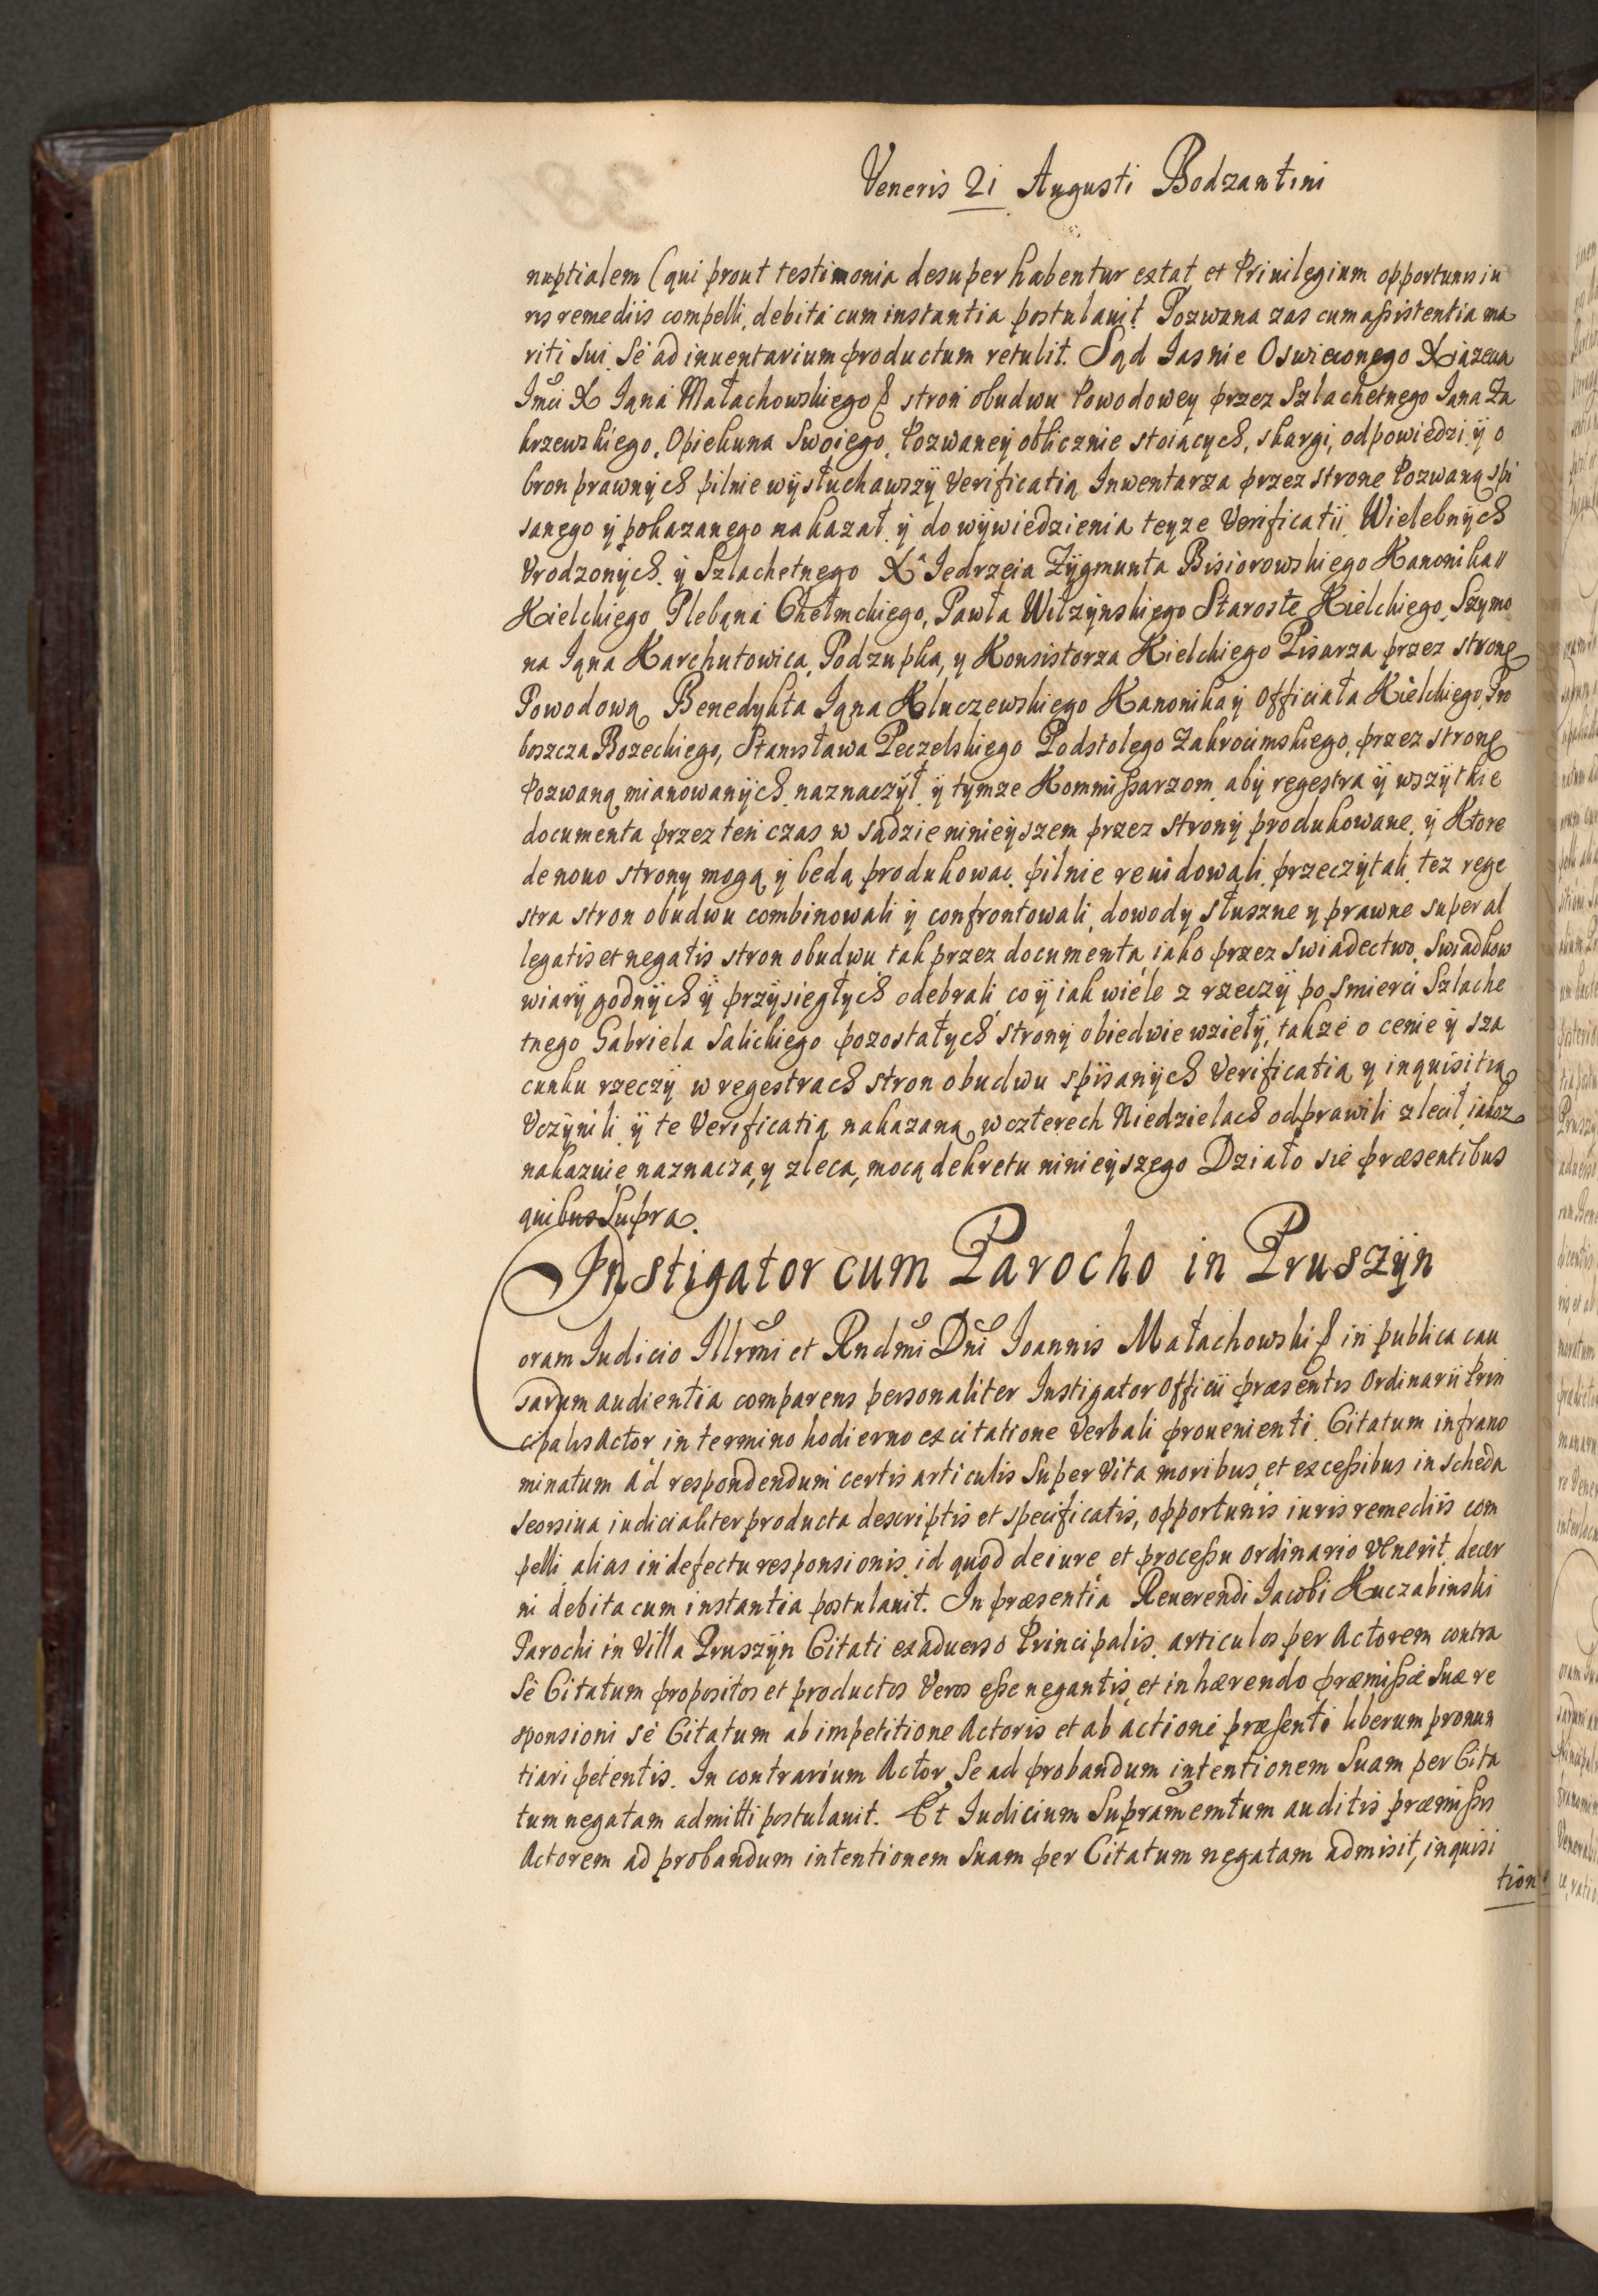 Veneris 21 Augusti Bodzantini
nuptialem (qui prout testimonia desuper habentur extat et Priuilegium opportunis iu
ris remediis compelli, debita cum instantia postulauit. Pozwana zas cum assistentia ma
riti sui. Se ad inuentarium productum retulit. Sąd Iasnie Oswieconego Xiązecia
Imci X Iąna Małachowskiego stron obudwu Powodowey przez Szlachetnego Iana Za
krzewskiego, Opiekuna Swoiego, Pozwaney oblicznie stoiących, skargi, odpowiedzi, ÿ o
bron prawnÿch pilnie wÿsłuchawszÿ Verificatią Inwentarza przez strone Pozwaną spi
sanego ÿ pokazanego nakazał. ÿ do wÿwiedzienia teyze Verificatii. Wielebnÿch
Vrodzonÿch. ÿ Szlachetnego X Iedrzeia Zÿgmunta Bisiorowskiego Kanonika
Kielckiego Plebąna Chełmckiego, Pawła Wilzÿnskiego Staroste Kielckiego, Szymo
na Iąna Karchutowica, Podzupka, y Konsistorza Kielckiego Pisarza przez strone
Powodową Benedykta Iąna Kluczewskiego Kanonika ÿ Officiała Kielckiego, Pro
boszcza Bozeckiego, Stanisława Peczelskiego Podstolego Zakrocimskiego, przez strone
Pozwaną mianowanÿch. naznaczÿł. ÿ tymze Kommissarzom abÿ regestra ÿ wszÿtkie
documenta przez ten czas w sądzie ninieÿszem przez stronÿ produkowane. ÿ Ktore
de nouo strony mogą ÿ beda produkowac. pilnie reuidowali, przeczÿtali, tez rege
stra stron obudwu combinowali ÿ confrontowali, dowody słuszne y prawne super al
legatis et negatis stron obudwu tak przez documenta, iako przez swiadectwo. Swiadkow
wiarÿ godnÿch ÿ przÿsiegłÿch odebrali, co ÿ iak wiele z rzeczÿ po smierci Szlache
tnego Gabriela Salickiego pozostałÿch, stronÿ obiedwie wziełÿ, takze o cenie ÿ sza
cunku rzeczÿ w regestrach stron obudwu spisanÿch Verificatią y inquisitią
Vczÿnili ÿ te Verificatią nakazaną, w czterech Niedzielach odprawili zlecił, iakoz
nakazuie, naznacza, y zleca, mocą dekretu ninieÿszego Działo sie præsentibus
quibus Supra.
Instigator cum Parocho in Pruszÿn
Coram Iudicio Illrmi et Rndmi Dni Ioannis Małachowski in publica cau
sarum audientia comparens personaliter Instigator Officii præsentis Ordinarii Prin
cipalis Actor in termino hodierno ex citatione Verbali prouenienti. Citatum infrano
minatum ad respondendum certis articulis super Vita moribus, et excessibus in scheda
seorsiua iudicialiter producta descriptis et specificatis, opportunis iuris remediis com
pelli alias in defectu responsionis, id quod de iure et processu ordinario venerit. decer
ni debita cum instantia postulauit. In præsentia Reuerendi Iacobi Kuczabinski
Parochi in Villa Pruszÿn Citati ex aduerso Principalis. articulos per Actorem contra
Se Citatum propositos et productos Veros esse negantis, et inhærendo præmissæ Suæ re
sponsioni se Citatum ab impetitione Actoris et ab actioni præsenti liberum pronun
tiari petentis. In contrarium Actor, Se ad probandum intentionem Suam per Cita
tum negatam admitti postulauit. Et Iudicium Supramemtum auditis præmissis
Actorem ad probandum intentionem Suam per Citatum negatam admisit, inquisi
tion